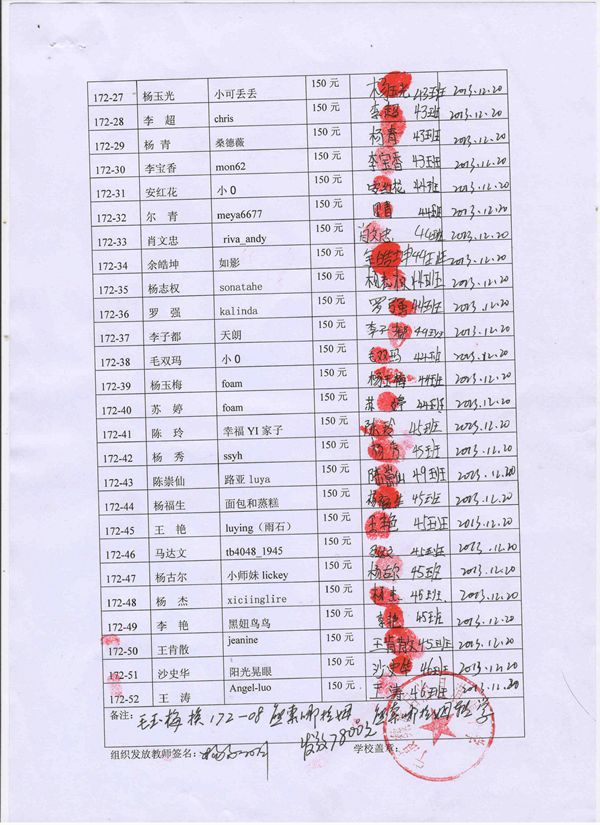 172-27 杨玉光 小可丢丢 150 元 杨玉光 43班 2013.12.20
172-28 李 超 chris 150 元 李超 43班 2013.12.20
172-29 杨 青 桑德薇 150 元 杨青 43班 2013.12.20
172-30 李宝香 mon62 150 元 李宝香 43班 2013.12.20
172-31 安红花 小 0 150 元 安红花 44班 2013.12.20
172-32 尔 青 meya6677 150 元 青 44班 2013.12.20
172-33 肖文忠 riva_andy 150 元 肖文忠 44班 2013.12.20
172-34 余皓坤 如影 150 元 余皓坤 44班 2013.12.20
172-35 杨志权 sonatahe 150 元 杨志权 44班 2013.12.20
172-36 罗 强 kalinda 150 元 罗强 44班 2013.12.20
172-37 李子都 天朗 150 元 李子都 44班 2013.12.20
172-38 毛双玛 小 0 150 元 毛双玛 44班 2013.12.20
172-39 杨玉梅 foam 150 元 杨玉梅 44班 2013.12.20
172-40 苏 婷 foam 150 元 苏婷 44班 2013.12.20
172-41 陈 玲 幸福 YI 家子 150 元 陈玲 45班 2013.12.20
172-42 杨 秀 ssyh 150 元 杨秀 45班 2013.12.20
172-43 陈崇仙 路亚 luya 150 元 仙 2013.12.20
172-44 杨福生 面包和蒸糕 150 元 杨福生 45班 2013.12.20
172-45 王 艳 luying（雨石） 150 元 王艳 45班 2013.12.20
172-46 马达文 tb4048_1945 150 元 45班 2013.12.20
172-47 杨古尔 小师妹 lickey 150 元 杨古尔 45班 2013.12.20
172-48 杨 杰 xiciinglire 150 元 杨杰 45班 2013.12.20
172-49 李 艳 黑妞鸟鸟 150 元 李艳 45班 2013.12.20
172-50 王肯散 jeanine 150 元 王肯散 45班 2013.12.20
172-51 沙史华 阳光晃眼 150 元 沙史华 46班 2013.12.20
172-52 王 涛 Angel-luo 150 元 王涛 46班 2013.12.20
备注： 毛玉梅换172-08
发放7800元
组织发放教师签名： 学校盖章：